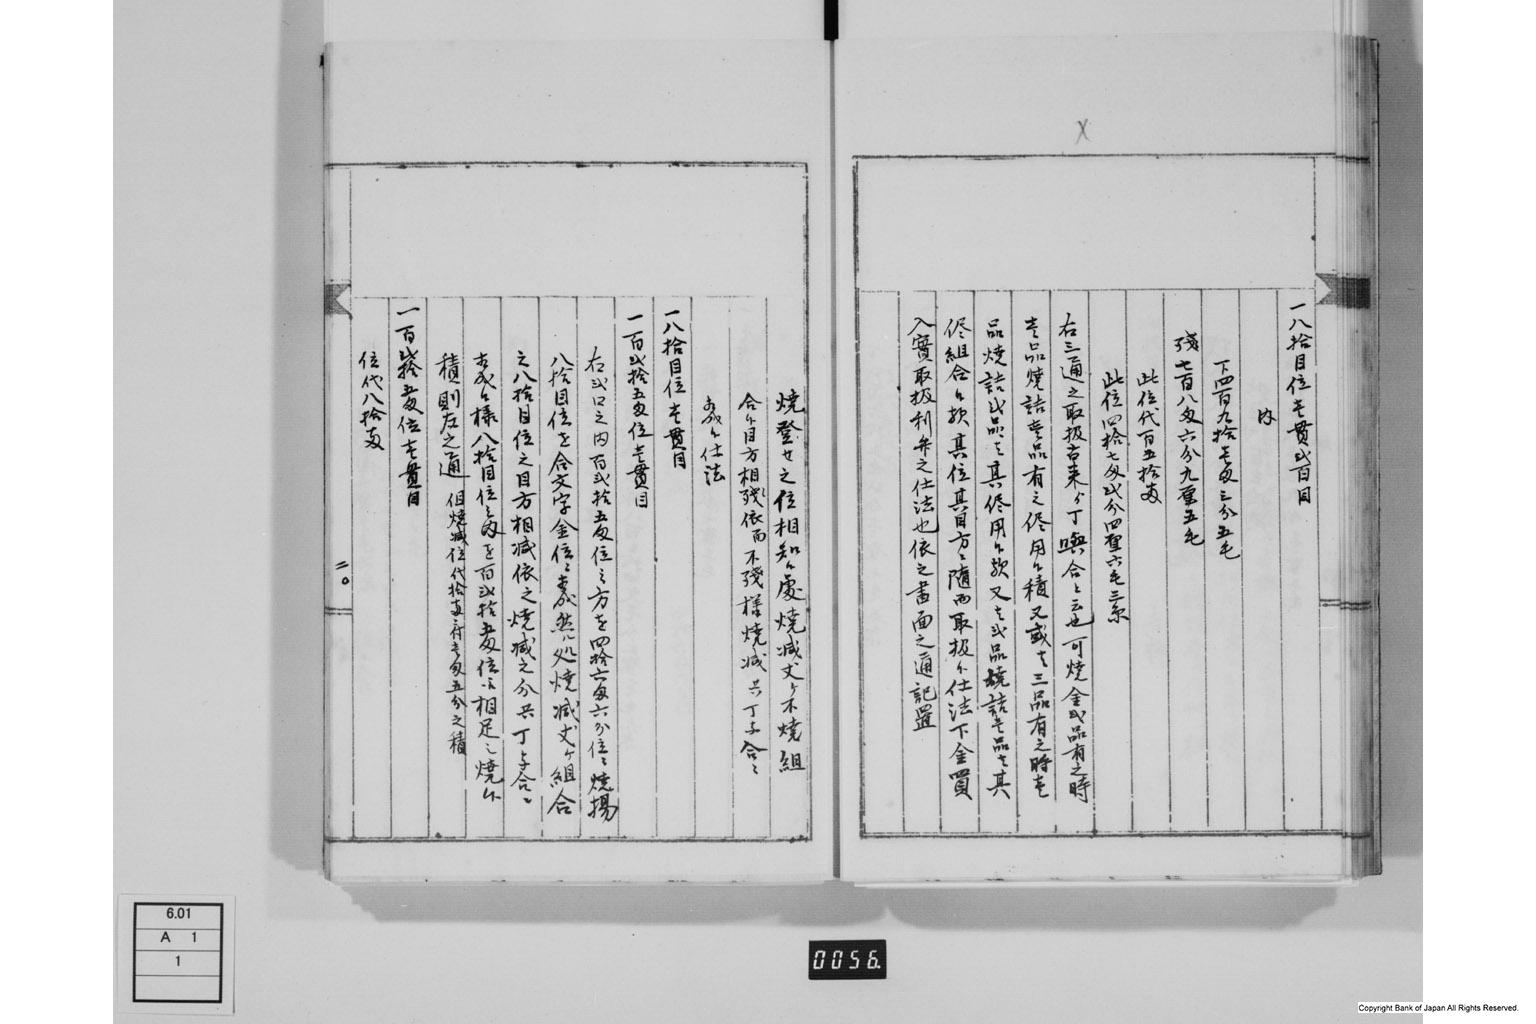 一八拾目位壱貫弐百目
内
下四百九拾壱匁三分五毛
残七百八匁六分九厘五毛
此位代百五拾両
此位四拾七匁弐分四厘六毛三糸
右三通之取扱古来ゟ丁與合と云也可焼金弐品有之時
壱品焼詰壱品有之侭用ル積又或ハ三品有之時壱
品焼詰弐品ハ其侭用ル歟又ハ弐品焼詰壱品ハ其
侭組合ル歟其位其目方ニ随而取扱ル仕法下金買
入實取扱利弁之仕法也依之書面之通記置
焼登セ之位相知ル處焼減丈ケ不焼組
合ル目方相殘依而不殘様焼減共丁子合ニ
成ル仕法
一八拾目位壱貫目
一百弐拾五匁位壱貫目
右弐口之内百弐拾五匁位之方を四拾六匁六分位ニ焼揚
八拾目位を合文字金位ニ成然ル処焼減丈ケ組合
之八拾目位之目方相減依之焼減之分共丁子合ニ
成ル様八拾目位之匁を百弐拾五匁位江相足シ焼ル
積則左之通 但焼減位代拾両ニ付壱匁五分之積
一百弐拾五匁位壱貫目
位代八拾両
二〇
6.01
A 1
1
0056.
Copyright Bank of Japan All Rights Reserved.